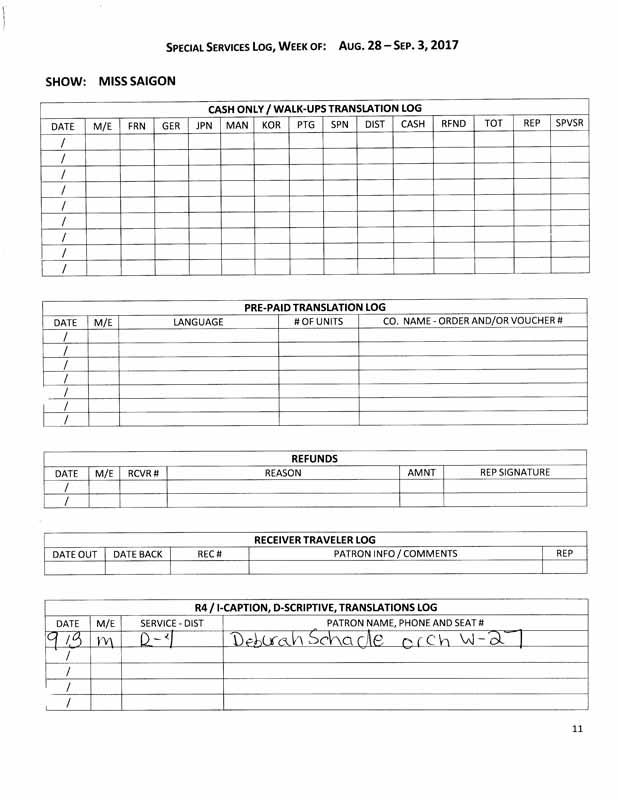 SPECIAL SERVICES LOG, WEEK OF: AUG. 28 – SEP. 3, 2017
SHOW: MISS SAIGON
CASH ONLY / WALK-UPS TRANSLATION LOG
DATE M/E FRN GER JPN MAN KOR PTG SPN DIST CASH RFND TOT REP SPVSR
/
/
/
/
/
/
/
/
/
PRE-PAID TRANSLATION LOG
DATE M/E LANGUAGE # OF UNITS CO. NAME - ORDER AND/OR VOUCHER #
/
/
/
/
/
/
/
REFUNDS
DATE M/E RCVR # REASON AMNT REP SIGNATURE
/
/
RECEIVER TRAVELER LOG
DATE OUT DATE BACK REC # PATRON INFO / COMMENTS REP
R4 / I-CAPTION, D-SCRIPTIVE, TRANSLATIONS LOG
DATE M/E SERVICE - DIST PATRON NAME, PHONE AND SEAT #
9/3 m R-4 Deburah orch W-27
/
/
/
/
11